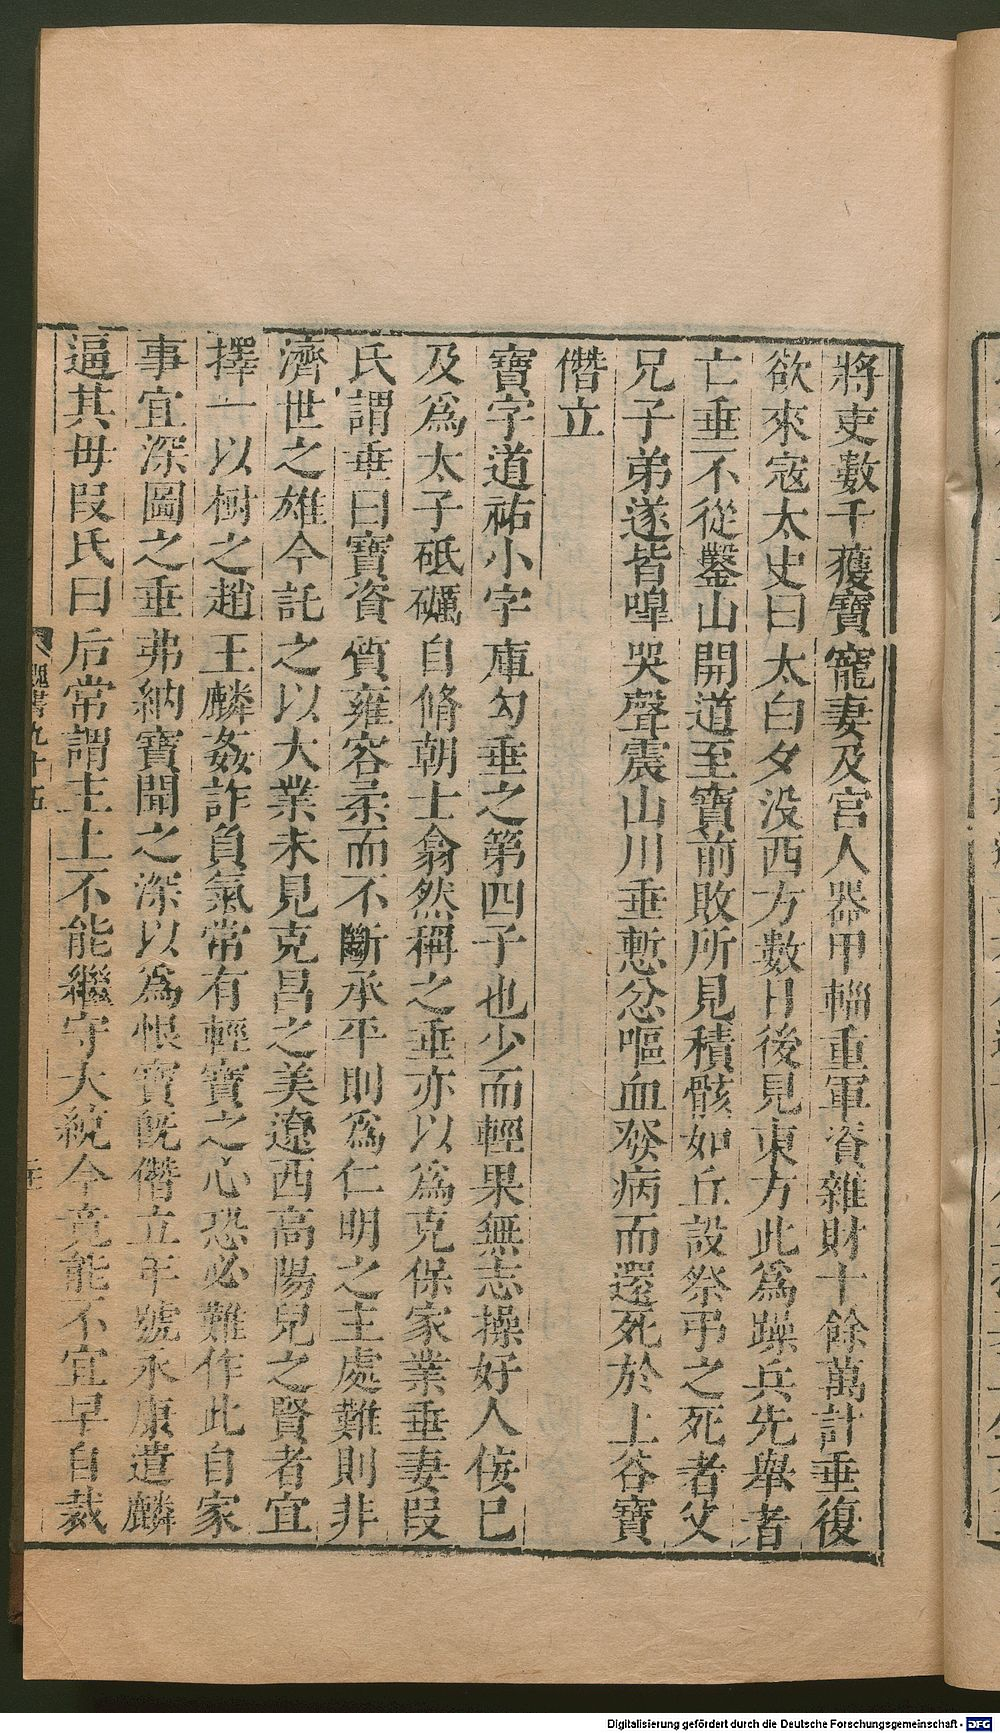 將吏數千獲寶寵妻及宮人器甲輜重軍資雜財十餘萬計垂復
欲來寇太史曰太白夕没西方數日後見東方此爲躁兵先舉者
亡垂不從鑿山開道至寶前敗所見積骸如丘設祭弔之死者父
兄子弟遂皆嘷哭聲震山川垂慙忿嘔血發病而還死於上谷寶
僭立
寶字道祐小字庫勾垂之第四子也少而輕果無志操好人佞已
及爲太子砥礪自脩朝士翕然稱之垂亦以爲克保家業垂妻段
氏謂垂曰寶資質雍容柔而不斷承平則爲仁明之主處難則非
濟世之雄今託之以大業未見克昌之美遼西高陽兒之賢者宜
擇一以樹之趙王麟姦詐負氣常有輕寶之心恐必難作此自家
事宜深圖之垂弗納寶聞之深以爲恨寶旣僭立年號永康遣麟
逼其母段氏曰后常謂主上不能繼守大統今竟能不宜早自裁
魏書九十五
Digitalisierung gefördert durch die Deutsche Forschungsgemeinschaft - DFG